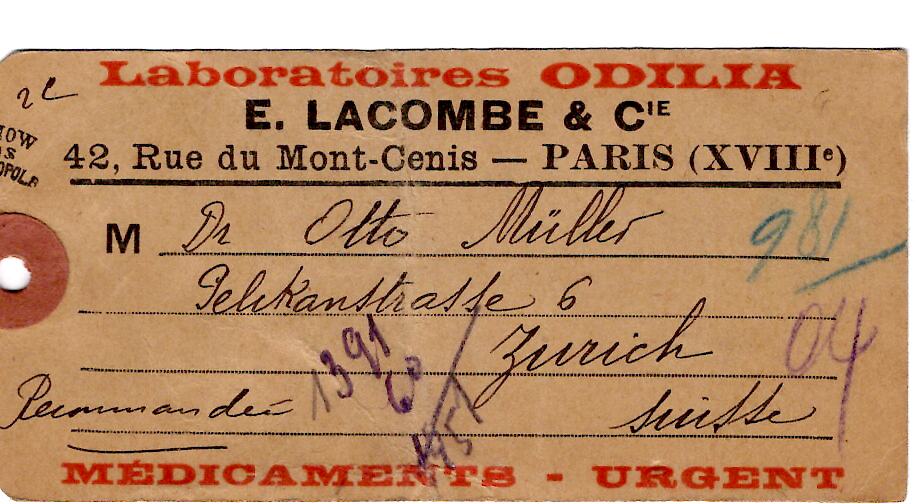 Laboratoires ODILIA
E. LACOMBE & CIE
42, Rue du Mont-Cenis — PARIS (XVIIIe)
M Dr Otto Müller
981
Pelikanstrasse 6
Zurich
04
1391
60
Recommandée
Suisse
MÉDICAMENTS - URGENT